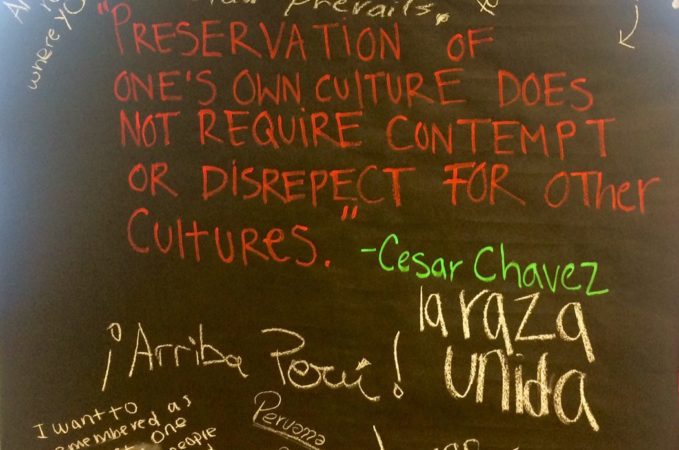 where yo
prevails,
"PRESERVATION OF
ONE'S OWN CULTURE DOES
NOT REQUIRE CONTEMPT
OR DISREPECT FOR OTHER
CULTURES."
-Cesar Chavez
la raza
unida
¡Arriba Perú!
Peruana
I want to
remembered as
one
people